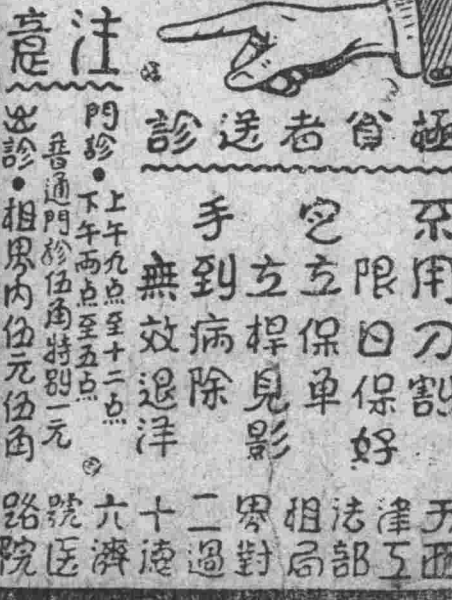 極貧者送診
不用刀割
限日保好
定立保单
立桿見影
手到病除
無效退洋
注意
門診•上午九点至十二点
下午兩点至五点
普通門診伍角特别一元
出診•租界内伍元伍角
天津法租界二十六號路
西工部局對過德濟医院